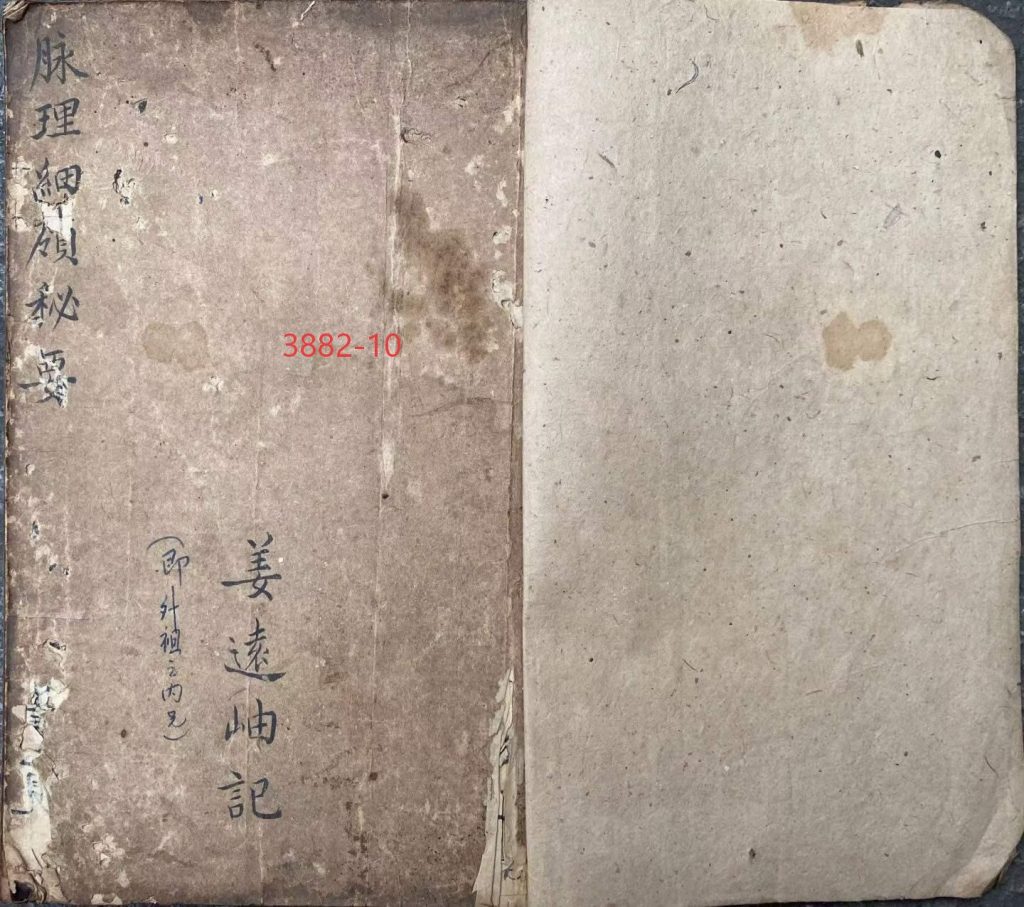 姜遠岫記
(即外祖之内兄)
脉理細領秘要
3882-10